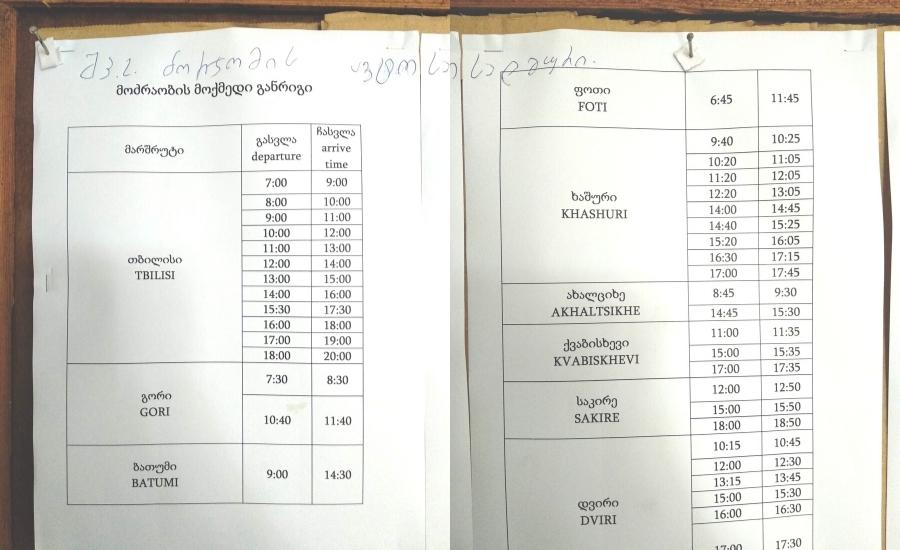 შ.პ.ს. ბორჯომის ავტოსადგური.
მოძრაობის მოქმედი განრიგი
მარშრუტი გასვლა departure ჩასვლა arrive time
თბილისი TBILISI
7:00 9:00
8:00 10:00
9:00 11:00
10:00 12:00
11:00 13:00
12:00 14:00
13:00 15:00
14:00 16:00
15:30 17:30
16:00 18:00
17:00 19:00
18:00 20:00
გორი GORI
7:30 8:30
10:40 11:40
ბათუმი BATUMI
9:00 14:30
ფოთი FOTI
6:45 11:45
ხაშური KHASHURI
9:40 10:25
10:20 11:05
11:20 12:05
12:20 13:05
14:00 14:45
14:40 15:25
15:20 16:05
16:30 17:15
17:00 17:45
ახალციხე AKHALTSIKHE
8:45 9:30
14:45 15:30
ქვაბისხევი KVABISKHEVI
11:00 11:35
15:00 15:35
17:00 17:35
საკირე SAKIRE
12:00 12:50
15:00 15:50
18:00 18:50
დვირი DVIRI
10:15 10:45
12:00 12:30
13:15 13:45
15:00 15:30
16:00 16:30
17:00 17:30